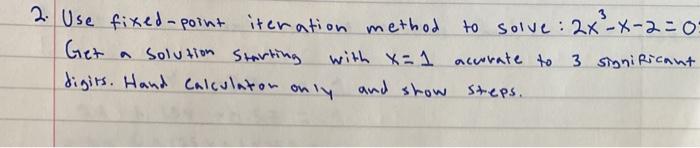 2. Use fixed-point iteration method to solve: 2x³-x-2=0
Get a solution starting with x=1 accurate to 3 significant
digits. Hand calculator only and show steps.